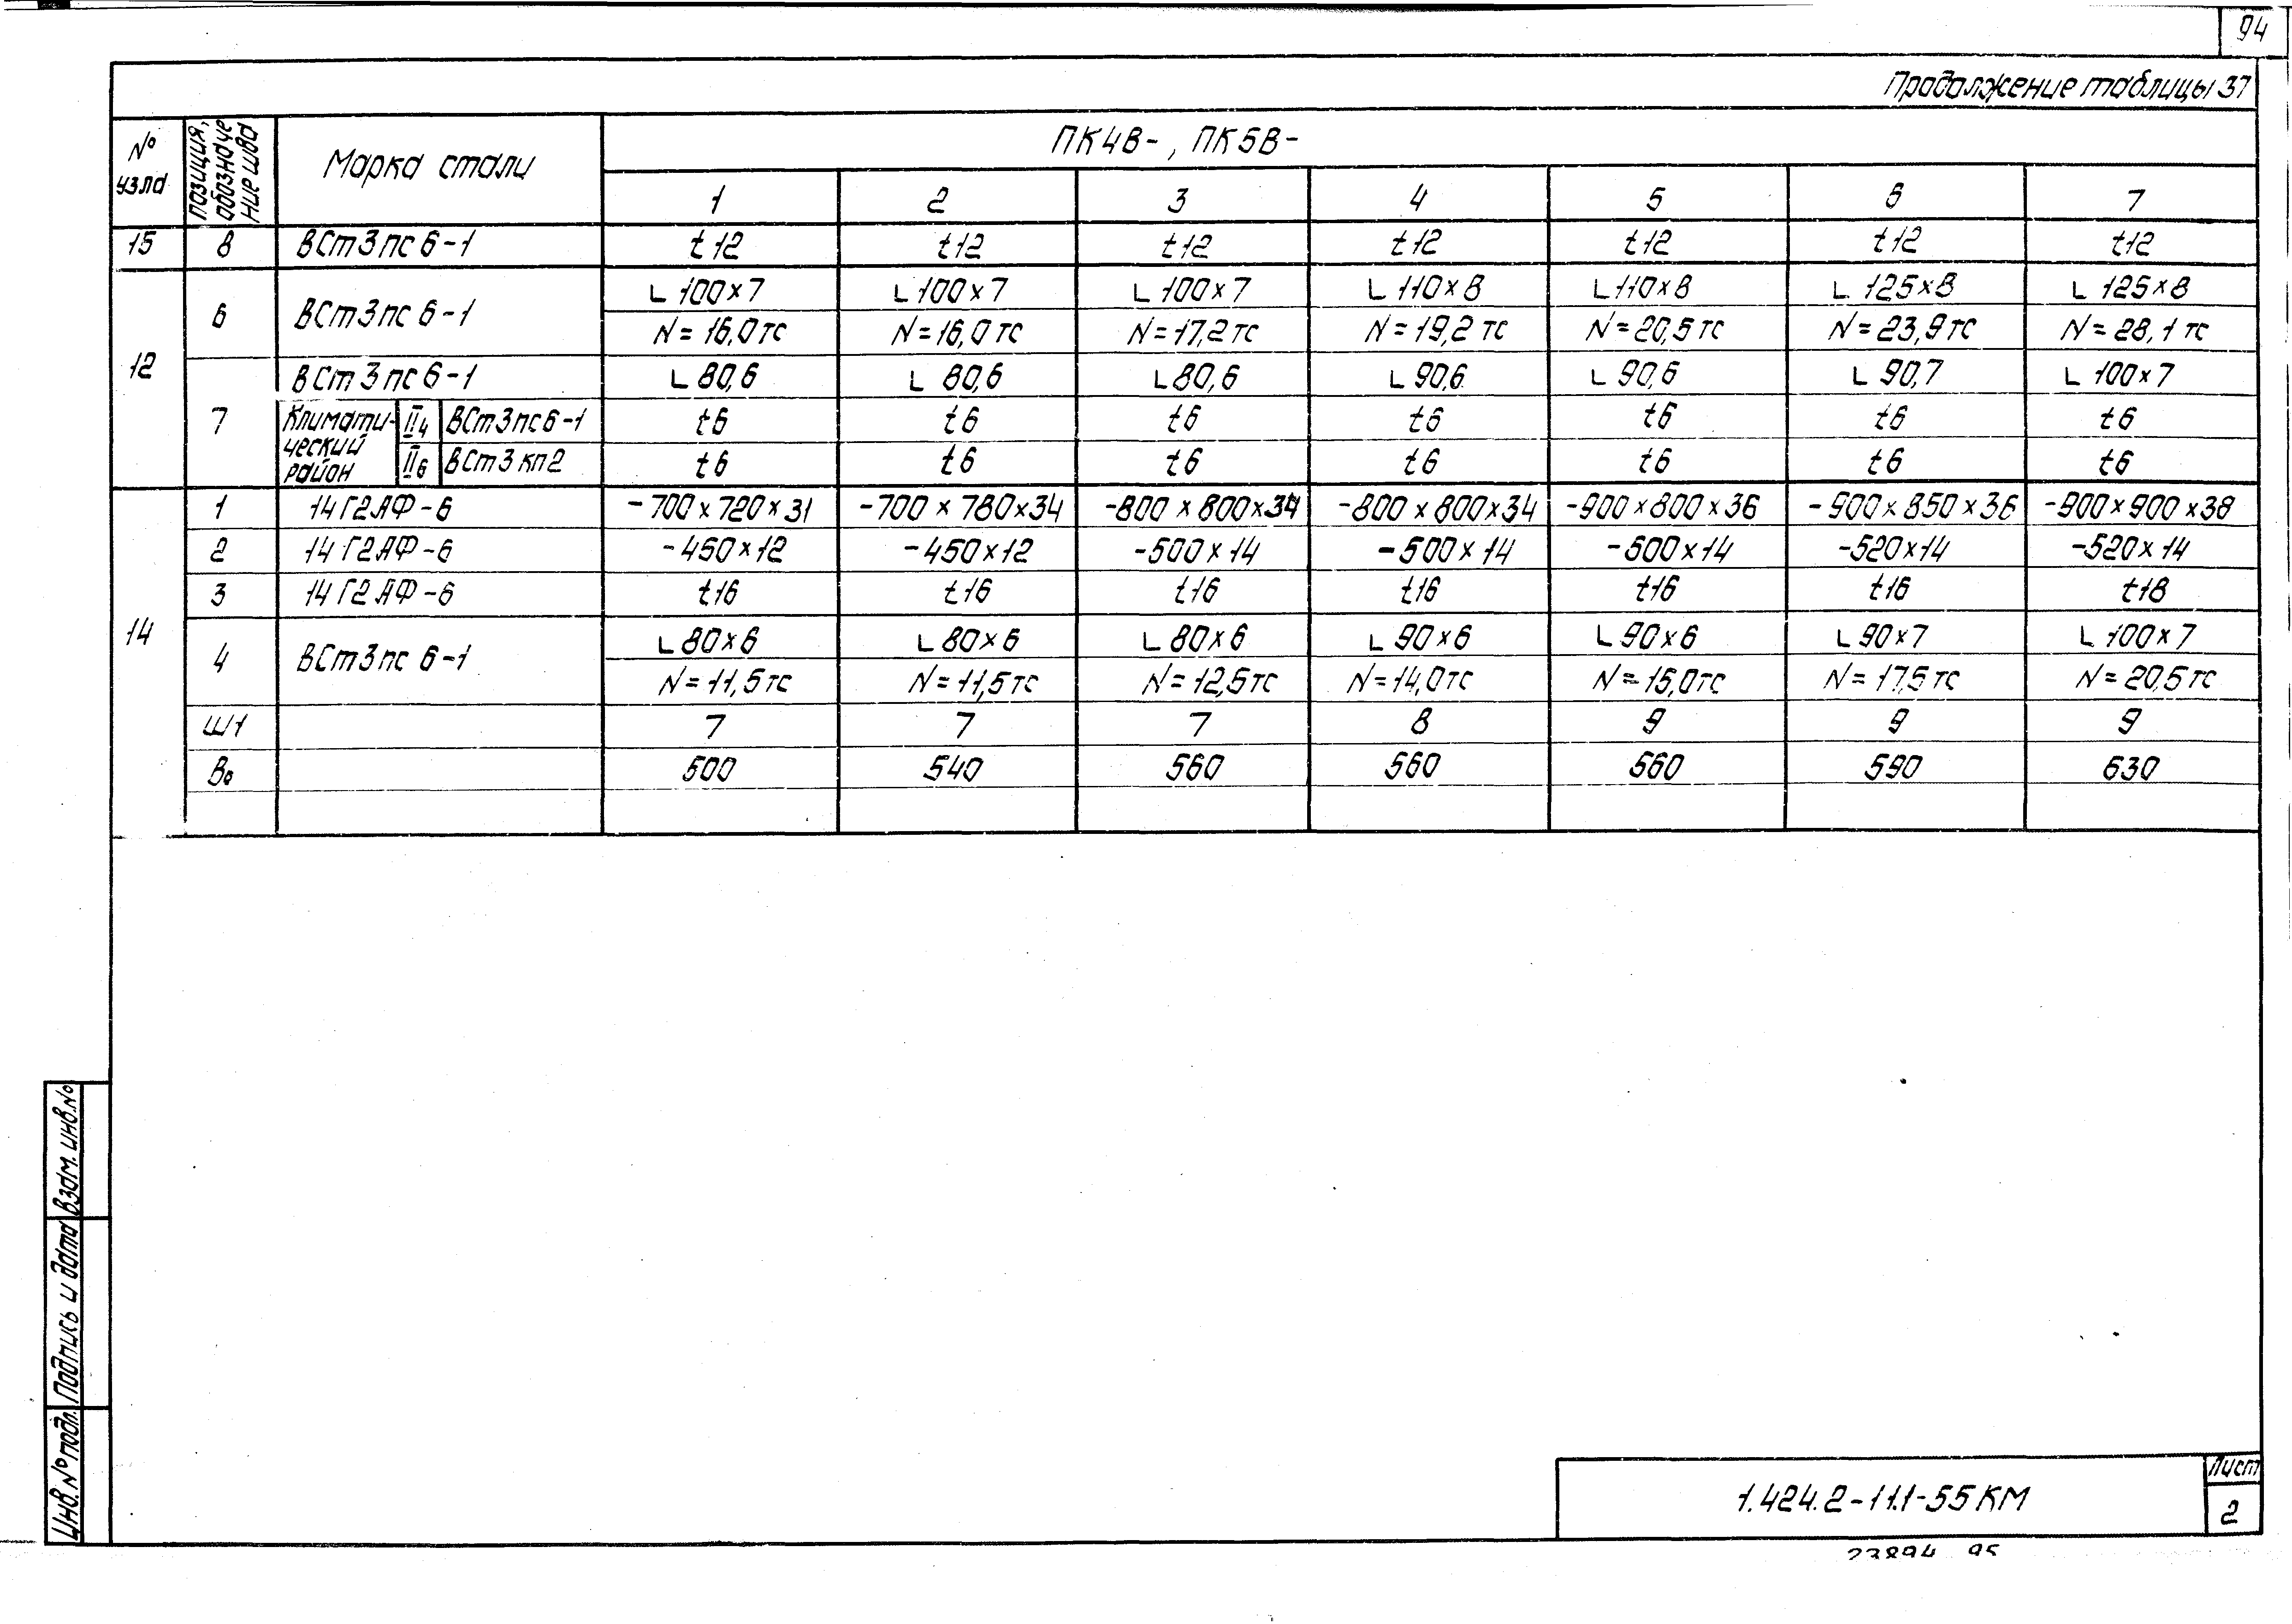 94
Продолжение таблицы 37
№ узла | Позиция, обозначение шва | Марка стали | ПК4В-, ПК5В-
1 | 2 | 3 | 4 | 5 | 6 | 7
15 | 8 | ВСт3пс6-1 | t12 | t12 | t12 | t12 | t12 | t12 | t12
12 | 6 | ВСт3пс6-1 | L 100×7 | L 100×7 | L 100×7 | L 110×8 | L 110×8 | L 125×8 | L 125×8
N=16,0тс | N=16,0тс | N=17,2тс | N=19,2тс | N=20,5тс | N=23,9тс | N=28,1тс
7 | ВСт3пс6-1 | L 80,6 | L 80,6 | L 80,6 | L 90,6 | L 90,6 | L 90,7 | L 100×7
Климатический район | II4 | ВСт3пс6-1 | t6 | t6 | t6 | t6 | t6 | t6 | t6
II6 | ВСт3кп2 | t6 | t6 | t6 | t6 | t6 | t6 | t6
14 | 1 | 14Г2АФ-6 | -700×720×31 | -700×780×34 | -800×800×34 | -800×800×34 | -900×800×36 | -900×850×36 | -900×900×38
2 | 14Г2АФ-6 | -450×12 | -450×12 | -500×14 | -500×14 | -500×14 | -520×14 | -520×14
3 | 14Г2АФ-6 | t16 | t16 | t16 | t16 | t16 | t16 | t18
4 | ВСт3пс6-1 | L 80×6 | L 80×6 | L 80×6 | L 90×6 | L 90×6 | L 90×7 | L 100×7
N=11,5тс | N=11,5тс | N=12,5тс | N=14,0тс | N=15,0тс | N=17,5тс | N=20,5тс
Ш1 | 7 | 7 | 7 | 8 | 9 | 9 | 9
Во | 500 | 540 | 560 | 560 | 560 | 590 | 630
Взам. инв. №
Подпись и дата
Инв. № подл.
1.424.2-11.1-55КМ
Лист
2
23894 95